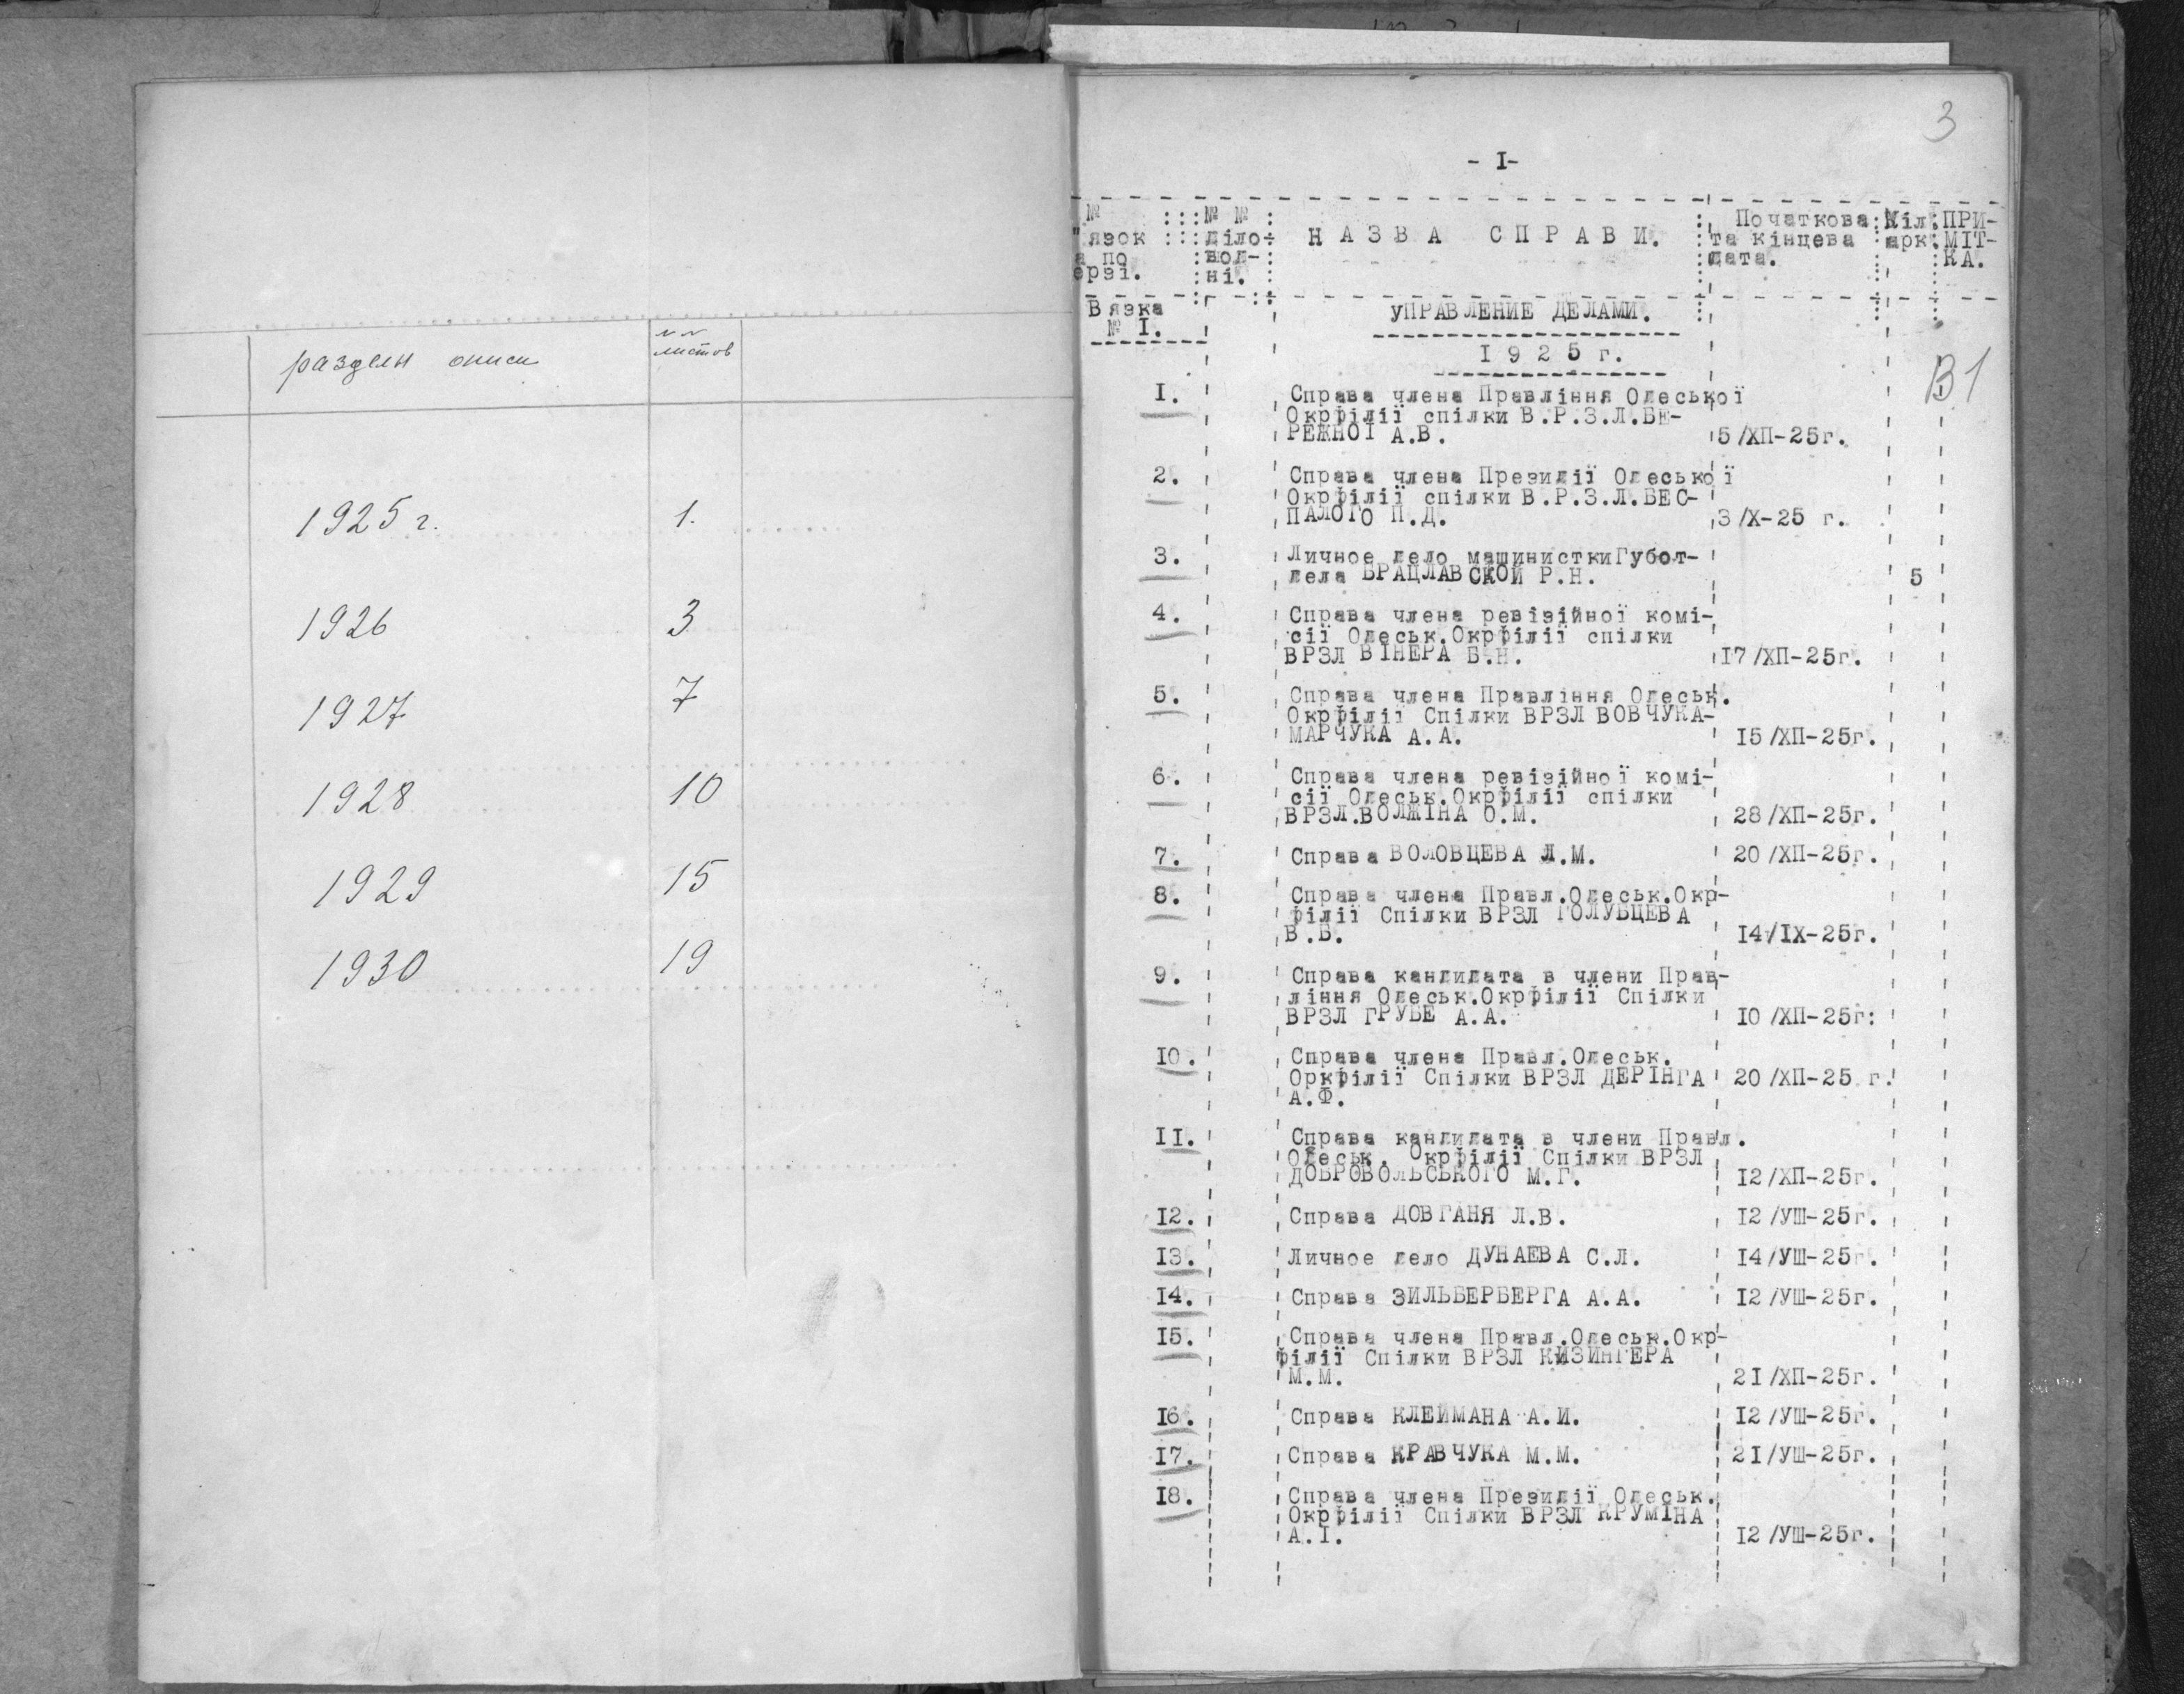 разделы описи
№№ листов
1925 г. 1.
1926 3
1927 7
1928 10
1929 15
1930 19
3
- I-
№ № № Початкова Кіл. ПРИ-
язок діло- НАЗВА СПРАВИ. та кінцева арк. МІТ-
по вод- дата. КА.
ерзі. ні.
Вязка УПРАВЛЕНИЕ ДЕЛАМИ.
№ I.
1925 г.
В1
I. Справа члена Правління Одеської
Окрфілії спілки В.Р.З.Л.БЕ-
РЕЖНОЇ А.В. 5/ХП-25г.
2. Справа члена Президії Одеської
Окрфілії спілки В.Р.З.Л.БЕС-
ПАЛОГО П.Д. 3/Х-25 г.
3. Личное дело машинистки Губот-
дела БРАЦЛАВСКОЙ Р.Н. 5
4. Справа члена ревізійної комі-
сії Одеськ.Окрфілії спілки
ВРЗЛ ВІНЕРА Б.Н. I7/ХП-25г.
5. Справа члена Правління Одеськ.
Окрфілії Спілки ВРЗЛ ВОВЧУКА-
МАРЧУКА А.А. I5/ХП-25г.
6. Справа члена ревізійної комі-
сії Одеськ.Окрфілії спілки
ВРЗЛ.ВОЛЖІНА О.М. 28/ХП-25г.
7. Справа ВОЛОВЦЕВА Л.М. 20/ХП-25г.
8. Справа члена Правл.Одеськ.Окр-
філії Спілки ВРЗЛ ГОЛУБЦЕВА
В.Б. I4/IX-25г.
9. Справа кандидата в члени Прав-
ління Одеськ.Окрфілії Спілки
ВРЗЛ ГРУБЕ А.А. I0/ХП-25г:
I0. Справа члена Правл.Одеськ.
Оркфілії Спілки ВРЗЛ ДЕРІНГА 20/ХП-25 г.
А.Ф.
II. Справа кандидата в члени Правл.
Одеськ. Окрфілії Спілки ВРЗЛ
ДОБРОВОЛЬСЬКОГО М.Г. I2/ХП-25г.
I2. Справа ДОВГАНЯ Л.В. I2/УШ-25г.
I3. Личное дело ДУНАЕВА С.Л. I4/УШ-25г.
I4. Справа ЗИЛЬБЕРБЕРГА А.А. I2/УШ-25г.
I5. Справа члена Правл.Одеськ.Окр-
філії Спілки ВРЗЛ КИЗИНГЕРА
М.М. 2I/ХП-25г.
I6. Справа КЛЕЙМАНА А.И. I2/УШ-25г.
I7. Справа КРАВЧУКА М.М. 2I/УШ-25г.
I8. Справа члена Президії Одеськ.
Окрфілії Спілки ВРЗЛ КРУМІНА
А.І. I2/УШ-25г.